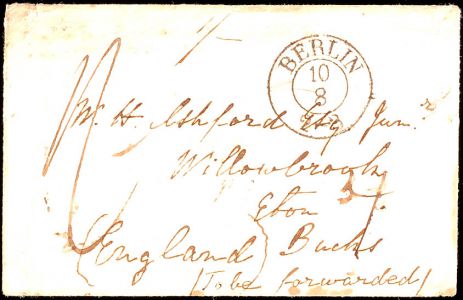 1/-
BERLIN
10
8
W. H. Ashford Esq. Junr.
Willowbrook
Eton
England Bucks
(To be forwarded)